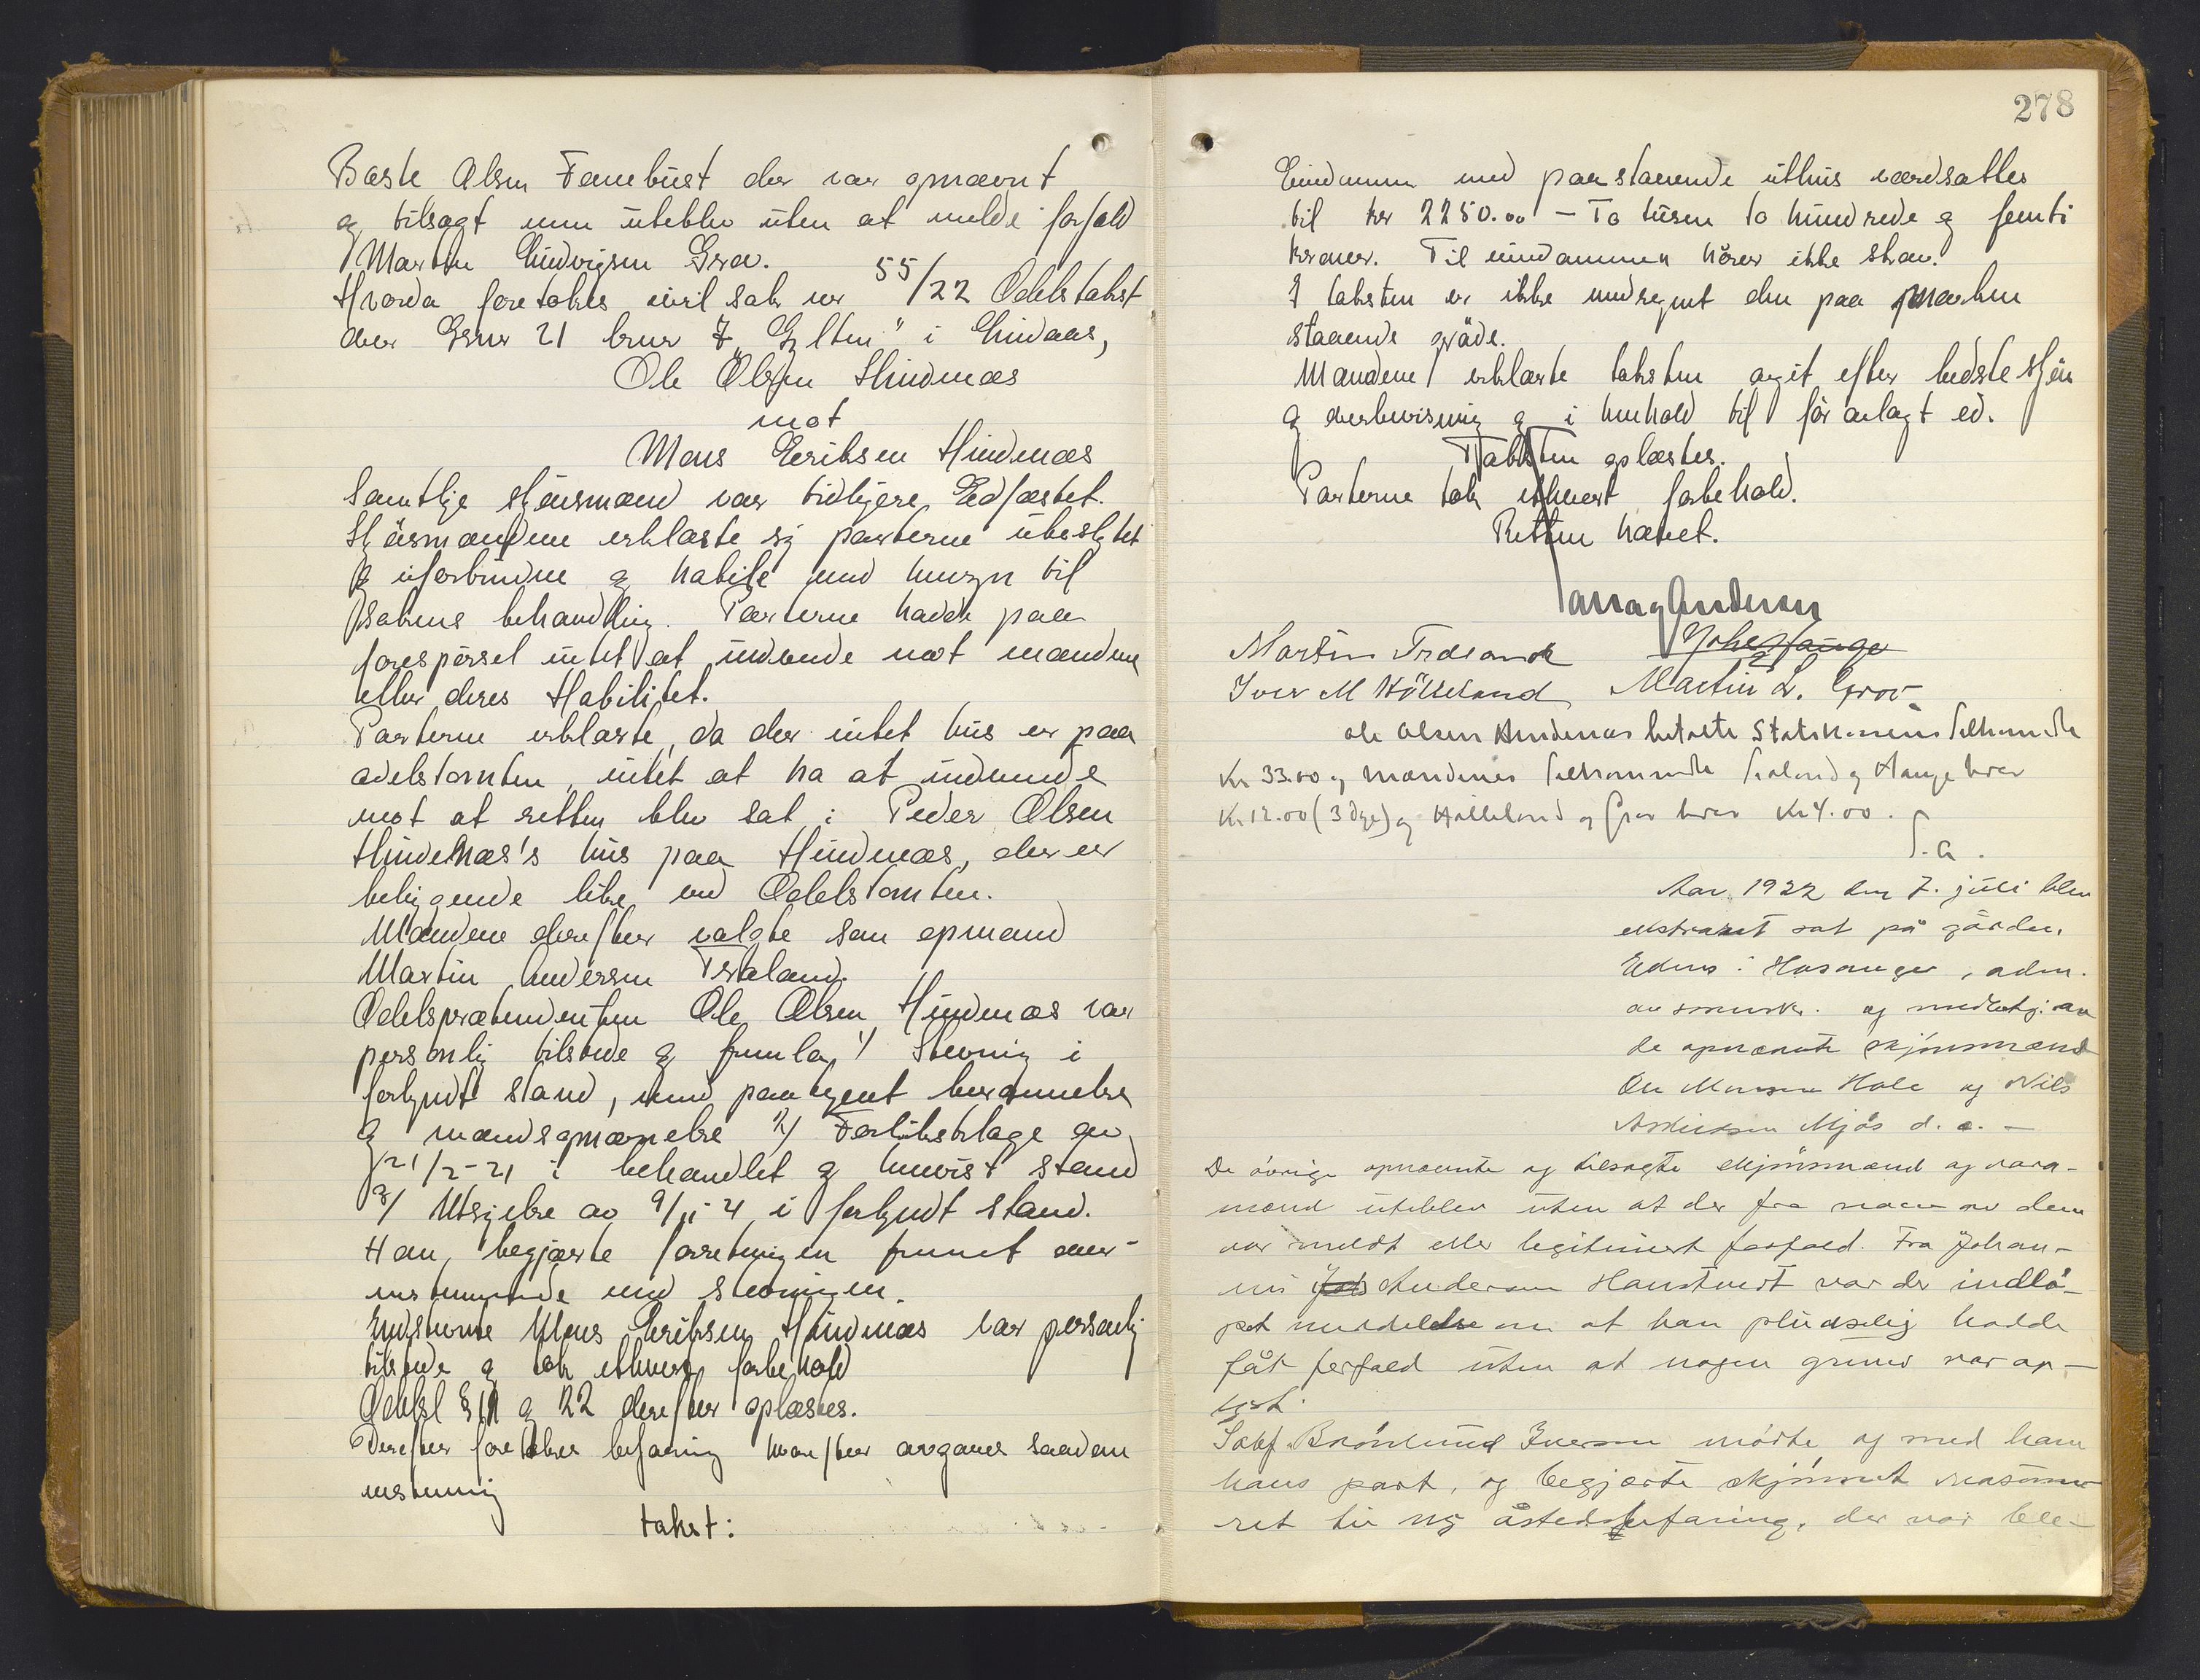 Baste Olsen Fanebust der var opnævnt
og tilsagt men uteblev uten at melde forfald
Martin Ludvigsen Grov.
Hvorda foretokes civil sak nr 55/22 Odelstakst
over Gnr 21 bnr 7 "Gylten" i Lindaas,
Ole Olsen Hindenæs
mot
Mons Eriksen Hindenæs
Samtlige skjønsmænd var tidligere Edfæstet.
Skjønsmændene erklærte sig parterne ubeslgtet
og uforbundne og habile med hensyn til
sakens behandling. Parterne hadde paa
forespørsel intet at indvende mot mændene
eller deres Habilitet.
Parterne erklærte, da der intet hus er paa
odelstomten, intet at ha at indvende
mot at retten blev sat i Peder Olsen
Hindenæs's hus paa Hindenæs, der er
beliggende like ved Odelstomten.
Mændene derefter valgte som opmand
Martin Andersen Træland.
Odelsprætendenten Ole Olsen Hindenæs var
personlig tilstede og fremla 1/ Stevning i
forkyndt stand, med paategnet berammelse
og mandsopnævnelse 2/ Forliksklage av
21/2-21 i behandlet og henvist stand
3/ Utsigelse av 9/11-21 i forkyndt stand.
Han begjærte forretningen fremet over-
ensstemmende med stevningen.
Indstevnte Mons Eriksen Hindenæs var personlig
tilstede og tok ethvert forbehold
Odelsl § 11 og 22 derefter oplæstes.
Derefter foretokes befaring hvorefter avgaves saadan
enstemmig
takst:
278
Eiendommen med paastaaende uthus værdsattes
til kr 2250.00 - To tusen to hundrede og femti
kroner. Til eiendommen hører ikke skov.
I taksten er ikke medregnet den paa marken
staaende grøde.
Mændene erklærte taksten avgit efter bedste skjøn
og overbevisning og i henhold til før avlagt ed.
Taksten oplæstes.
Parterne tok ethvert forbehold.
Retten hævet.
Andersen
Martin Træland Johs Hauge
Iver M Hölleland Martin L. Grov
Ole Olsen Hindenæs betalte Statskassens tilkommende
Kr 33.00 og mændenes tilkommende Træland og Hauge hver
Kr 12.00 (3 dge) og Hølleland og Grov hver Kr 4.00.
Aar 1922 den 7. juli blev
ekstraret sat på gården
Eidnes i Hosanger, adm.
av sorensk. og medbetj. av
de opnævnte skjønsmænd
Ole Monsen Hole og Nils
Andersen Mjøs d. e. -
De øvrige opnævnte og tilsagte skjønsmænd og vara-
mænd uteblev uten at der fra noen av dem
var meldt eller legitimert forfald. Fra Johan-
nes Andersen Hanstveit var der indlø-
pet meddelelse om at han pludselig hadde
fåt forfald uten at nogen grund var op-
lyst.
Sakf. Brønlund Iversen mødte og med ham
hans part, og begjærte skjønnet reasume-
ret til ny åstedsbefaring, der var ble-